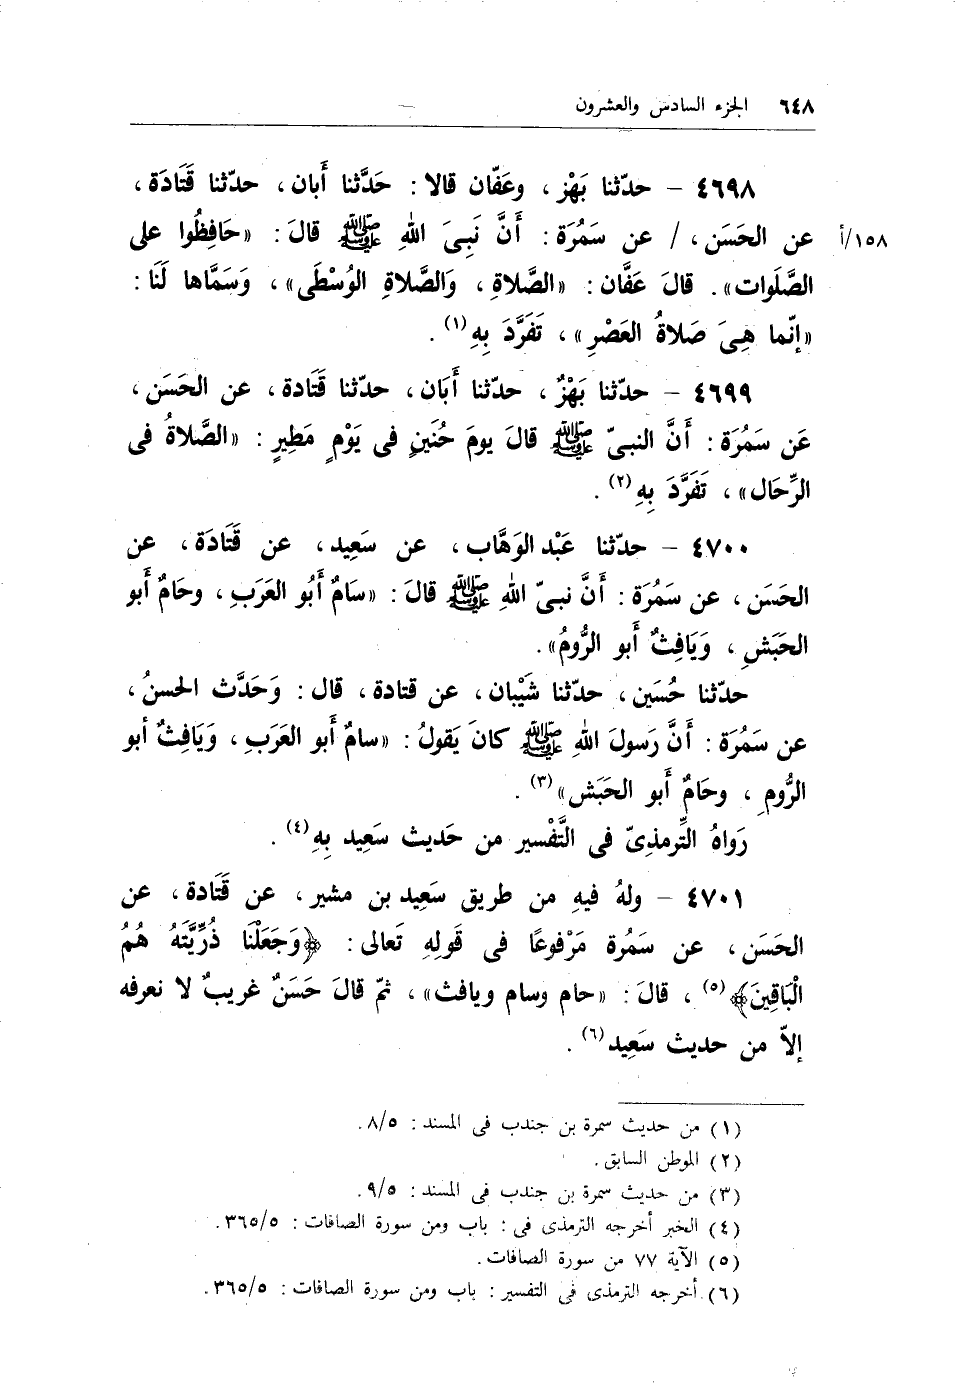 ٦٤٨ الجزء السادس والعشرون
٤٦٩٨ – حدّثنا بَهْز، وعَفّان قالا: حَدَّثنا أَبان، حدّثنا قَتَادَة،
١٥٨/أ عن الحَسَن، / عن سَمُرَة: أَنَّ نَبِىَ اللهِ ﷺ قالَ: «حَافِظُوا على
الصَّلَوات». قالَ عَفَّان: «الصَّلاةِ، وَالصَّلاةِ الوُسْطَى»، وَسَمَّاها لَنَا:
«إنّما هِىَ صَلاةُ العَصْرِ»، تَفَرَّدَ بِهِ(١).
٤٦٩٩ – حدّثنا بَهْزٌ، حدّثنا أَبَان، حدّثنا قَتَادة، عن الحَسَن،
عَن سَمُرَة: أَنَّ النبىّ ﷺ قالَ يومَ حُنَينٍ فى يَوْمٍ مَطِيرٍ: «الصَّلاةُ فى
الرِّحَال»، تَفَرَّدَ بِهِ(٢).
٤٧٠٠ – حدّثنا عَبْد الوَهَّاب، عن سَعِيد، عن قَتَادَة، عن
الحَسَن، عن سَمُرَة: أَنَّ نبىّ اللهِ ﷺ قالَ: «سَامٌ أَبُو العَرَبِ، وحَامٌ أَبو
الحَبَشِ، وَيَافِثٌ أبو الرُّومُ».
حدّثنا حُسَين، حدّثنا شَيْبان، عن قتادة، قال: وَحَدَّث الحسنُ،
عن سَمُرَة: أَنَّ رَسولَ اللهِ ﷺ كانَ يَقولُ: «سامٌ أَبو العَرَبِ، وَيَافِثٌ أبو
الرُّومِ، وحَامٌ أَبو الحَبَش»(٣).
رَواهُ التِّرمذِىّ فى التَّفْسير من حَديث سَعِيد بِهِ(٤).
٤٧٠١ – ولهُ فيهِ من طريق سَعِيد بن مشير، عن قَتَادة، عن
الحَسَن، عن سَمُرة مَرْفوعًا فى قَولِهِ تَعالى: ﴿وَجَعَلْنَا ذُرِّيَّتَهُ هُمُ
الْبَاقِينَ﴾(٥)، قالَ: «حام وسام ويافث»، ثمّ قالَ حَسَنٌ غريبٌ لا نعرفه
إلاّ من حديث سَعِيد(٦).
(١) من حديث سمرة بن جندب فى المسند: ٨/٥.
(٢) الموطن السابق.
(٣) من حديث سمرة بن جندب فى المسند: ٩/٥.
(٤) الخبر أخرجه الترمذى فى: باب ومن سورة الصافات: ٣٦٥/٥.
(٥) الآية ٧٧ من سورة الصافات.
(٦) أخرجه الترمذى فى التفسير: باب ومن سورة الصافات: ٣٦٥/٥.